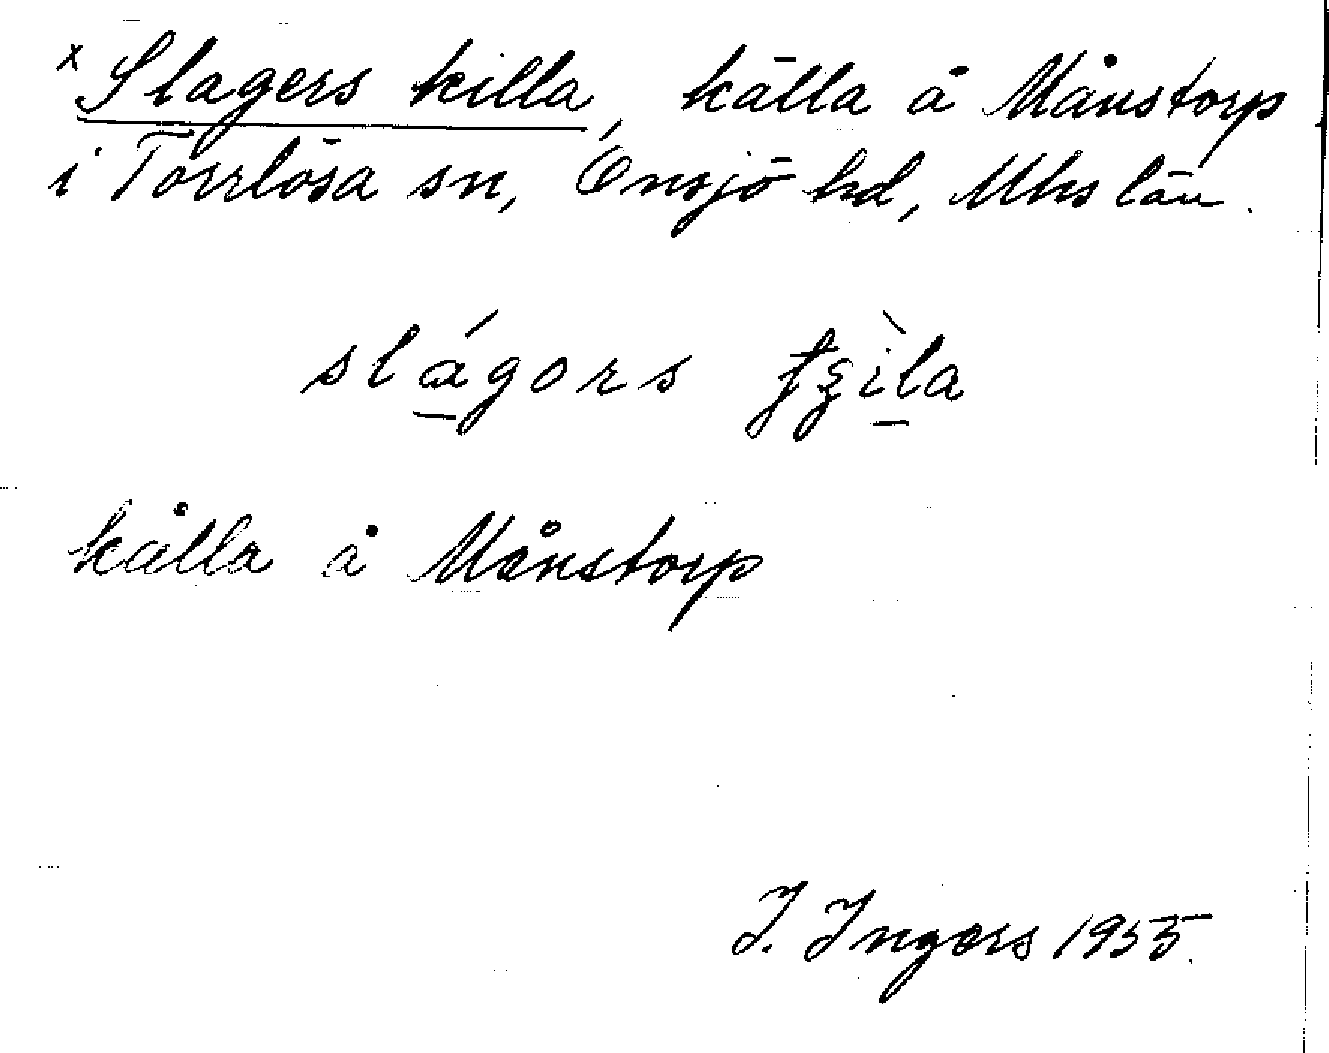 x Slagers killa, källa å Månstorp
i Torrlösa sn, Onsjö hd, Mhs län.
slágors
källa å Månstorp
I. Ingers 1955.